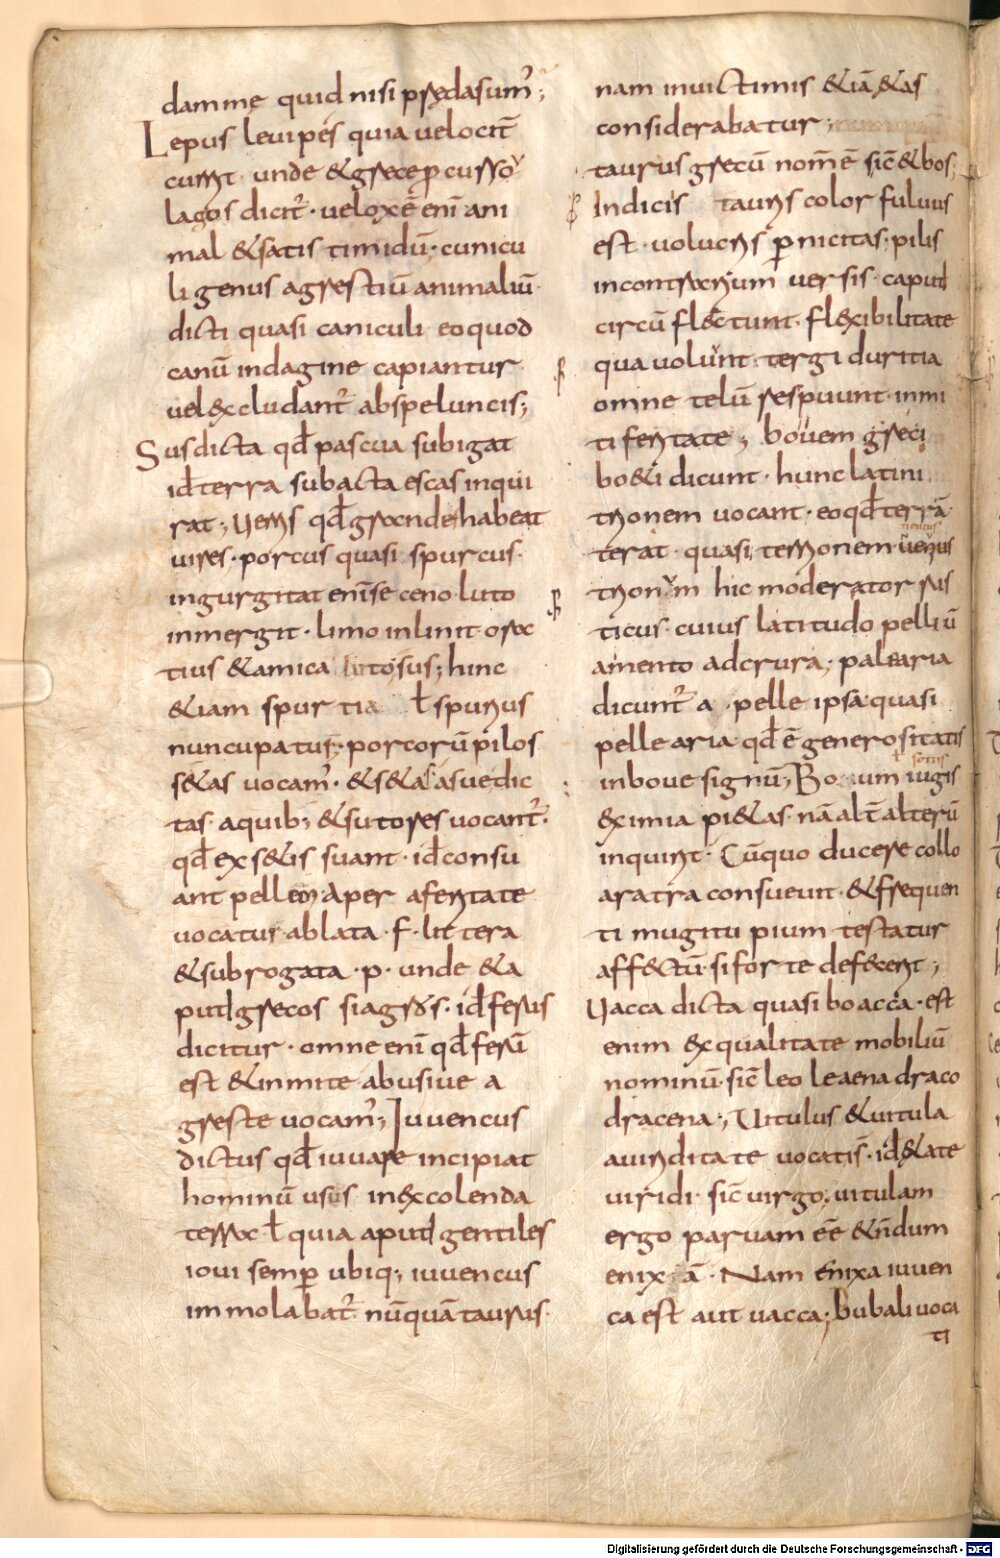 dammę quid nisi pręda sum̄;
Lepus leuipes quia uelocit̄
currit unde & grece p cursu
lagos dicit̄ · uelox ē enī ani
mal & satis timidū; cunicu
li genus agrestiū animaliū
dicti quasi caniculi eo quod
canū indagine capiantur
uel excludant̄ ab speluncis;
Sus dicta qđ pascua subigat
id terra subacta escas inqui
rat; Uerris qđ grandes habeat
uires · porcus quasi spurcus
ingurgitat enī se ceno luto
inmergit · limo inlinit orac
tius & amica luto sus; hinc
&iam spurtia ł spurius
nuncupatus; porcorū pilos
s&as uocam̄ · & s&as a sue dic
tas a quib; & sutores uocant̄
qđ ex s&is suant · id consu
ant pellem Aper a feritate
uocatur ablata · f · littera
& subrogata · p · unde & a
put grecos siagros · id ferus
dicitur · omne enī qđ ferū
est & inmite abusiue a
greste uocam̄; Iuuencus
dictus qđ iuuare incipiat
hominū usus in excolenda
terra ł quia aput gentiles
ioui semp ubiq; iuuencus
immolabat̄ nūquā taurus
nam in uictimis &iā &as
considerabatur;
taurus grecū nom̄ ē sic̄ & bos;
Indicis tauris color fuluus
est · uolucris pnicitas · pilis
in contrarium uersis · caput
circū flectunt · flexibilitate
qua uolunt · tergi duritia
omne telū respuunt · inmi
ti feritate; bouem greci
bo&i dicunt · hunc latini
trionem uocant · eo qđ terrā
terat · quasi terrionem
hic moderator rus
ticus · cuius latitudo pelliū
a mento ad crura; palearia
dicunt̄ a pelle ipsa quasi
pellearia qđ ē generositatis
in boue signū; Boum iugis
sociis
eximia pi&as nā alt̄ alterū
inquirit · Cū quo ducere collo
aratra consueuit · & frequen
ti mugitu pium testatur
affectū · si forte defecerit;
Uacca dicta quasi boacca · est
enim ex qualitate mobiliū
nominū · sic̄ leo leaena draco
dracena; Uitulus & uitula
a uiriditate uocatis · id &ate
uiridi · sic̄ uirgo; uitulam
ergo paruam eē & n̄dum
enixā · Nam enixa iuuen
ca est aut uacca; bubali uoca
ti
Digitalisierung gefördert durch die Deutsche Forschungsgemeinschaft - DFG